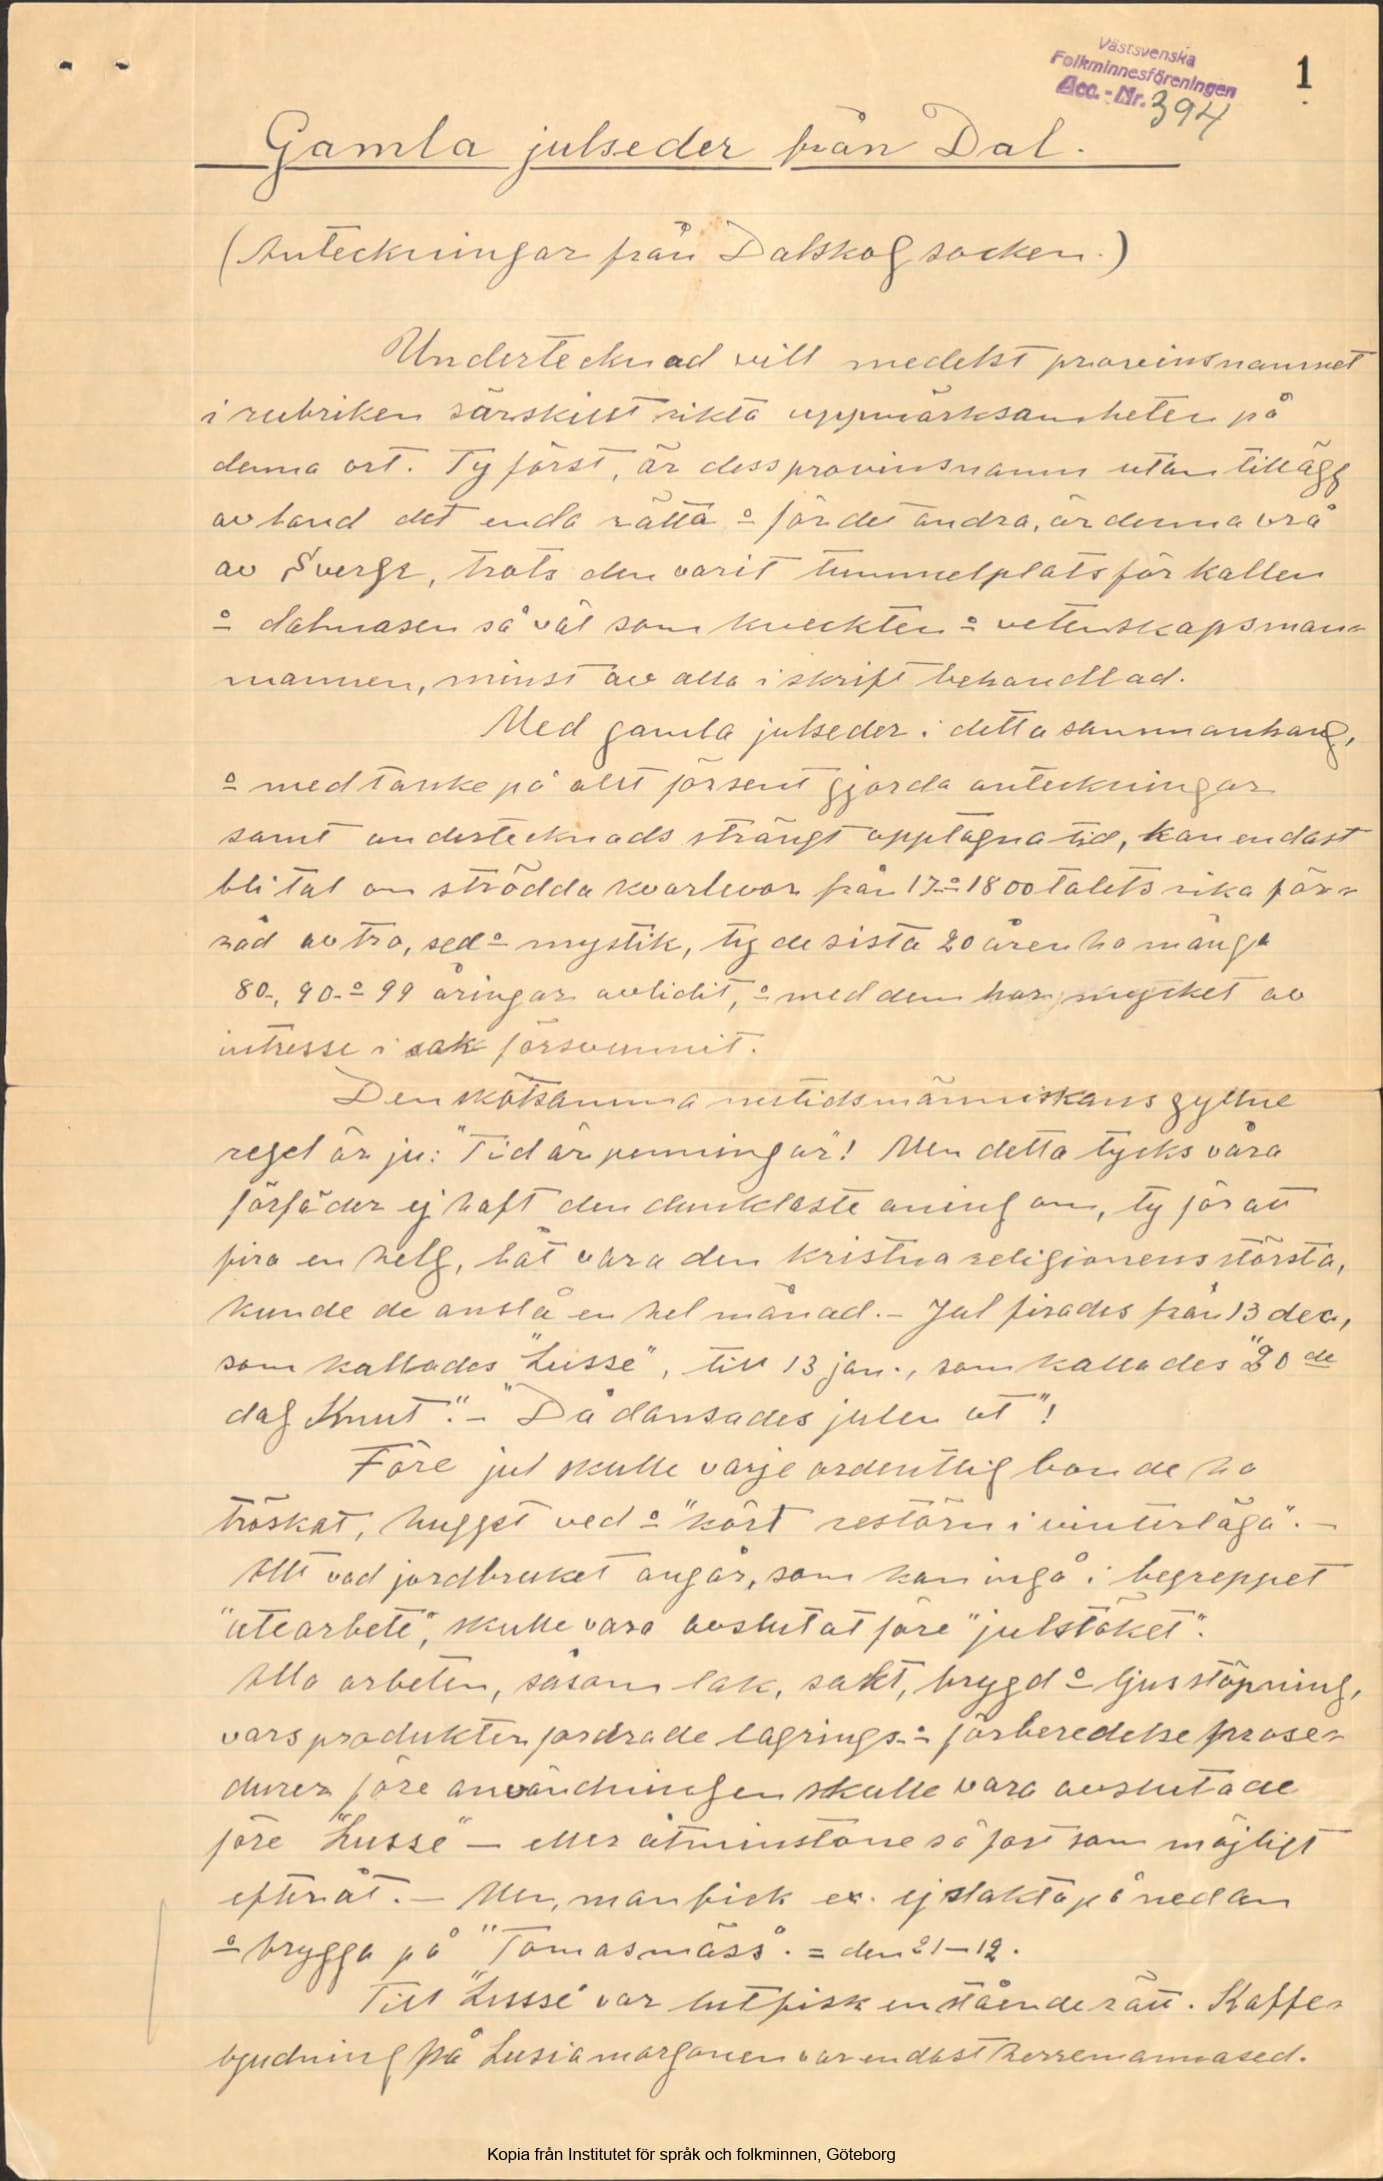 Västsvenska
Folkminnesföreningen
Acc.-Nr. 394
1
Gamla julseder från Dal.
(Anteckningar från Dalskog socken.)
Undertecknad vill medelst provinsnamnet
i rubriken särskilt rikta uppmärksamheten på
denna ort. Ty först, är dess provinsnamn utan tillägg
av land det enda rätta o för det andra, är denna vrå
av Sverge, trots den varit tummelplats för kallen
o dalmasen så väl som knekten o vetenskapsman-
mannen, minst av alla i skrift behandlad.
Med gamla julseder i detta sammanhang,
o med tanke på allt för sent gjorda anteckningar
samt undertecknads strängt upptagna tid, kan endast
bli tal om strödda kvarlevor från 17- o 1800 talets rika för-
råd av tro, sed o mystik, ty de sista 20 åren ha många
80-, 90- o 99 åringar avlidit, o med dem har mycket av
intresse i sak försvunnit.
Den skötsamma nutidsmänniskans gyllne
regel är ju: "Tid är penningar"! Men detta tycks våra
förfäder ej haft den dunklaste aning om, ty för att
fira en helg, låt vara den kristna religionens största,
kunde de anslå en hel månad. - Jul firades från 13 dec,
som kallades "Lusse", till 13 jan., som kallades "20de
dag Knut". - "Då dansades julen ut"!
Före jul skulle varje ordentlig bonde ha
tröskat, hugget ved o "kört restörn i vinterlägä". -
Allt vad jordbruket angår, som kan ingå i begreppet
"utearbete", skulle vara avslutat före "julstöket".
Alla arbeten, såsom lak, sakt, brygd o ljusstöpning,
vars produkter fordrade lagrings- o förberedelse prose-
durer före användningen skulle vara avslutade
före "Lusse" - eller åtminstone så fort som möjligt
efteråt. - Men, man fick ex. ej slakta på nedan
o brygga på "Tomasmäss". = den 21-12.
Till "Lusse" var lutfisk en stående rätt. Kaffe-
bjudning på Lusiamorgonen var endast herremannased.
Kopia från Institutet för språk och folkminnen, Göteborg